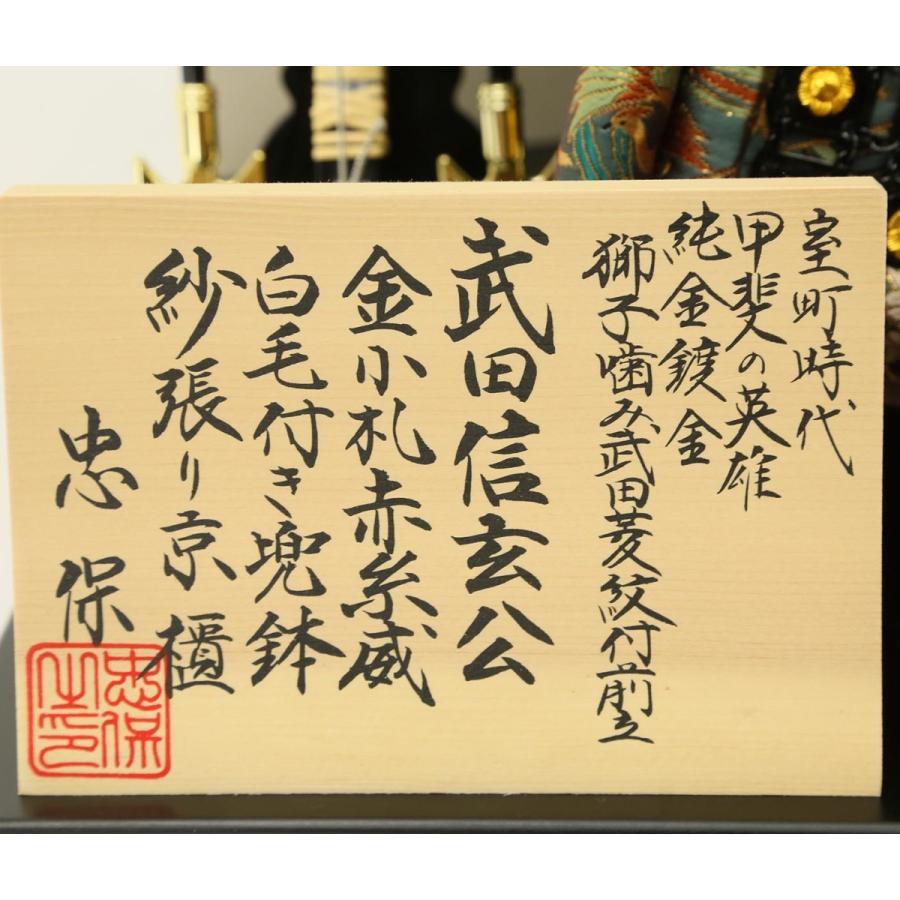 室町時代
甲斐の英雄
純金鍍金
獅子噛み武田菱紋付前立
武田信玄公
金小札赤糸威
白毛付き兜鉢
紗張り京櫃
忠保
忠保之印